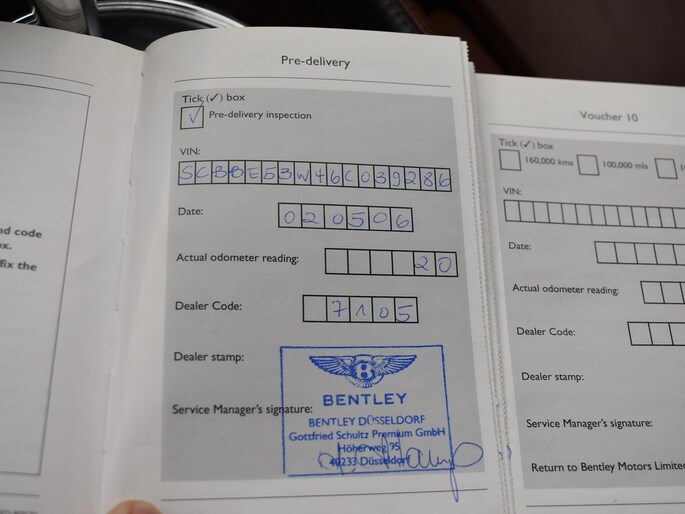 nd code
ox.
fix the
Pre-delivery
Tick (✓) box
✓ Pre-delivery inspection
VIN:
SCBBE53W46C039286
Date:
020506
Actual odometer reading:
20
Dealer Code:
7105
Dealer stamp:
B
BENTLEY
BENTLEY DÜSSELDORF
Gottfried Schultz Premium GmbH
Höherweg 95
40233 Düsseldorf
Service Manager's signature:
Voucher 10
Tick (✓) box
160,000 kms
100,000 mls
VIN:
Date:
Actual odometer reading:
Dealer Code:
Dealer stamp:
Service Manager's signature:
Return to Bentley Motors Limite